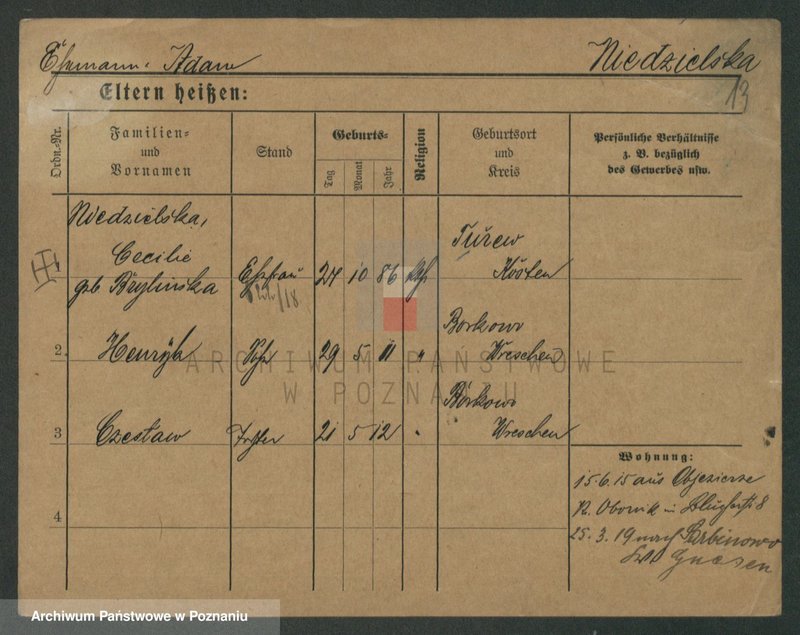 Ehemann: Adam
Niedzielska
13
Eltern heißen:
Ordn.-Nr.
Familien-
und
Vornamen
Stand
Geburts-
Tag
Monat
Jahr
Religion
Geburtsort
und
Kreis
Persönliche Verhältnisse
z. B. bezüglich
des Gewerbes usw.
1
Niedzielska,
Cecilie
geb. Brylinska
Ehefrau
24 10 86 kth
Turew
Kosten
2. Henryk
29 5 11 "
Borkowo
Wreschen
3 Czesław
21 5 12 "
Borkowo
Wreschen
4
Wohnung:
15.6.15 aus Objezierze
Kr. Obornik in
25.3.19 nach
Gnesen
ARCHIWUM PAŃSTWOWE
W POZNANIU
Archiwum Państwowe w Poznaniu